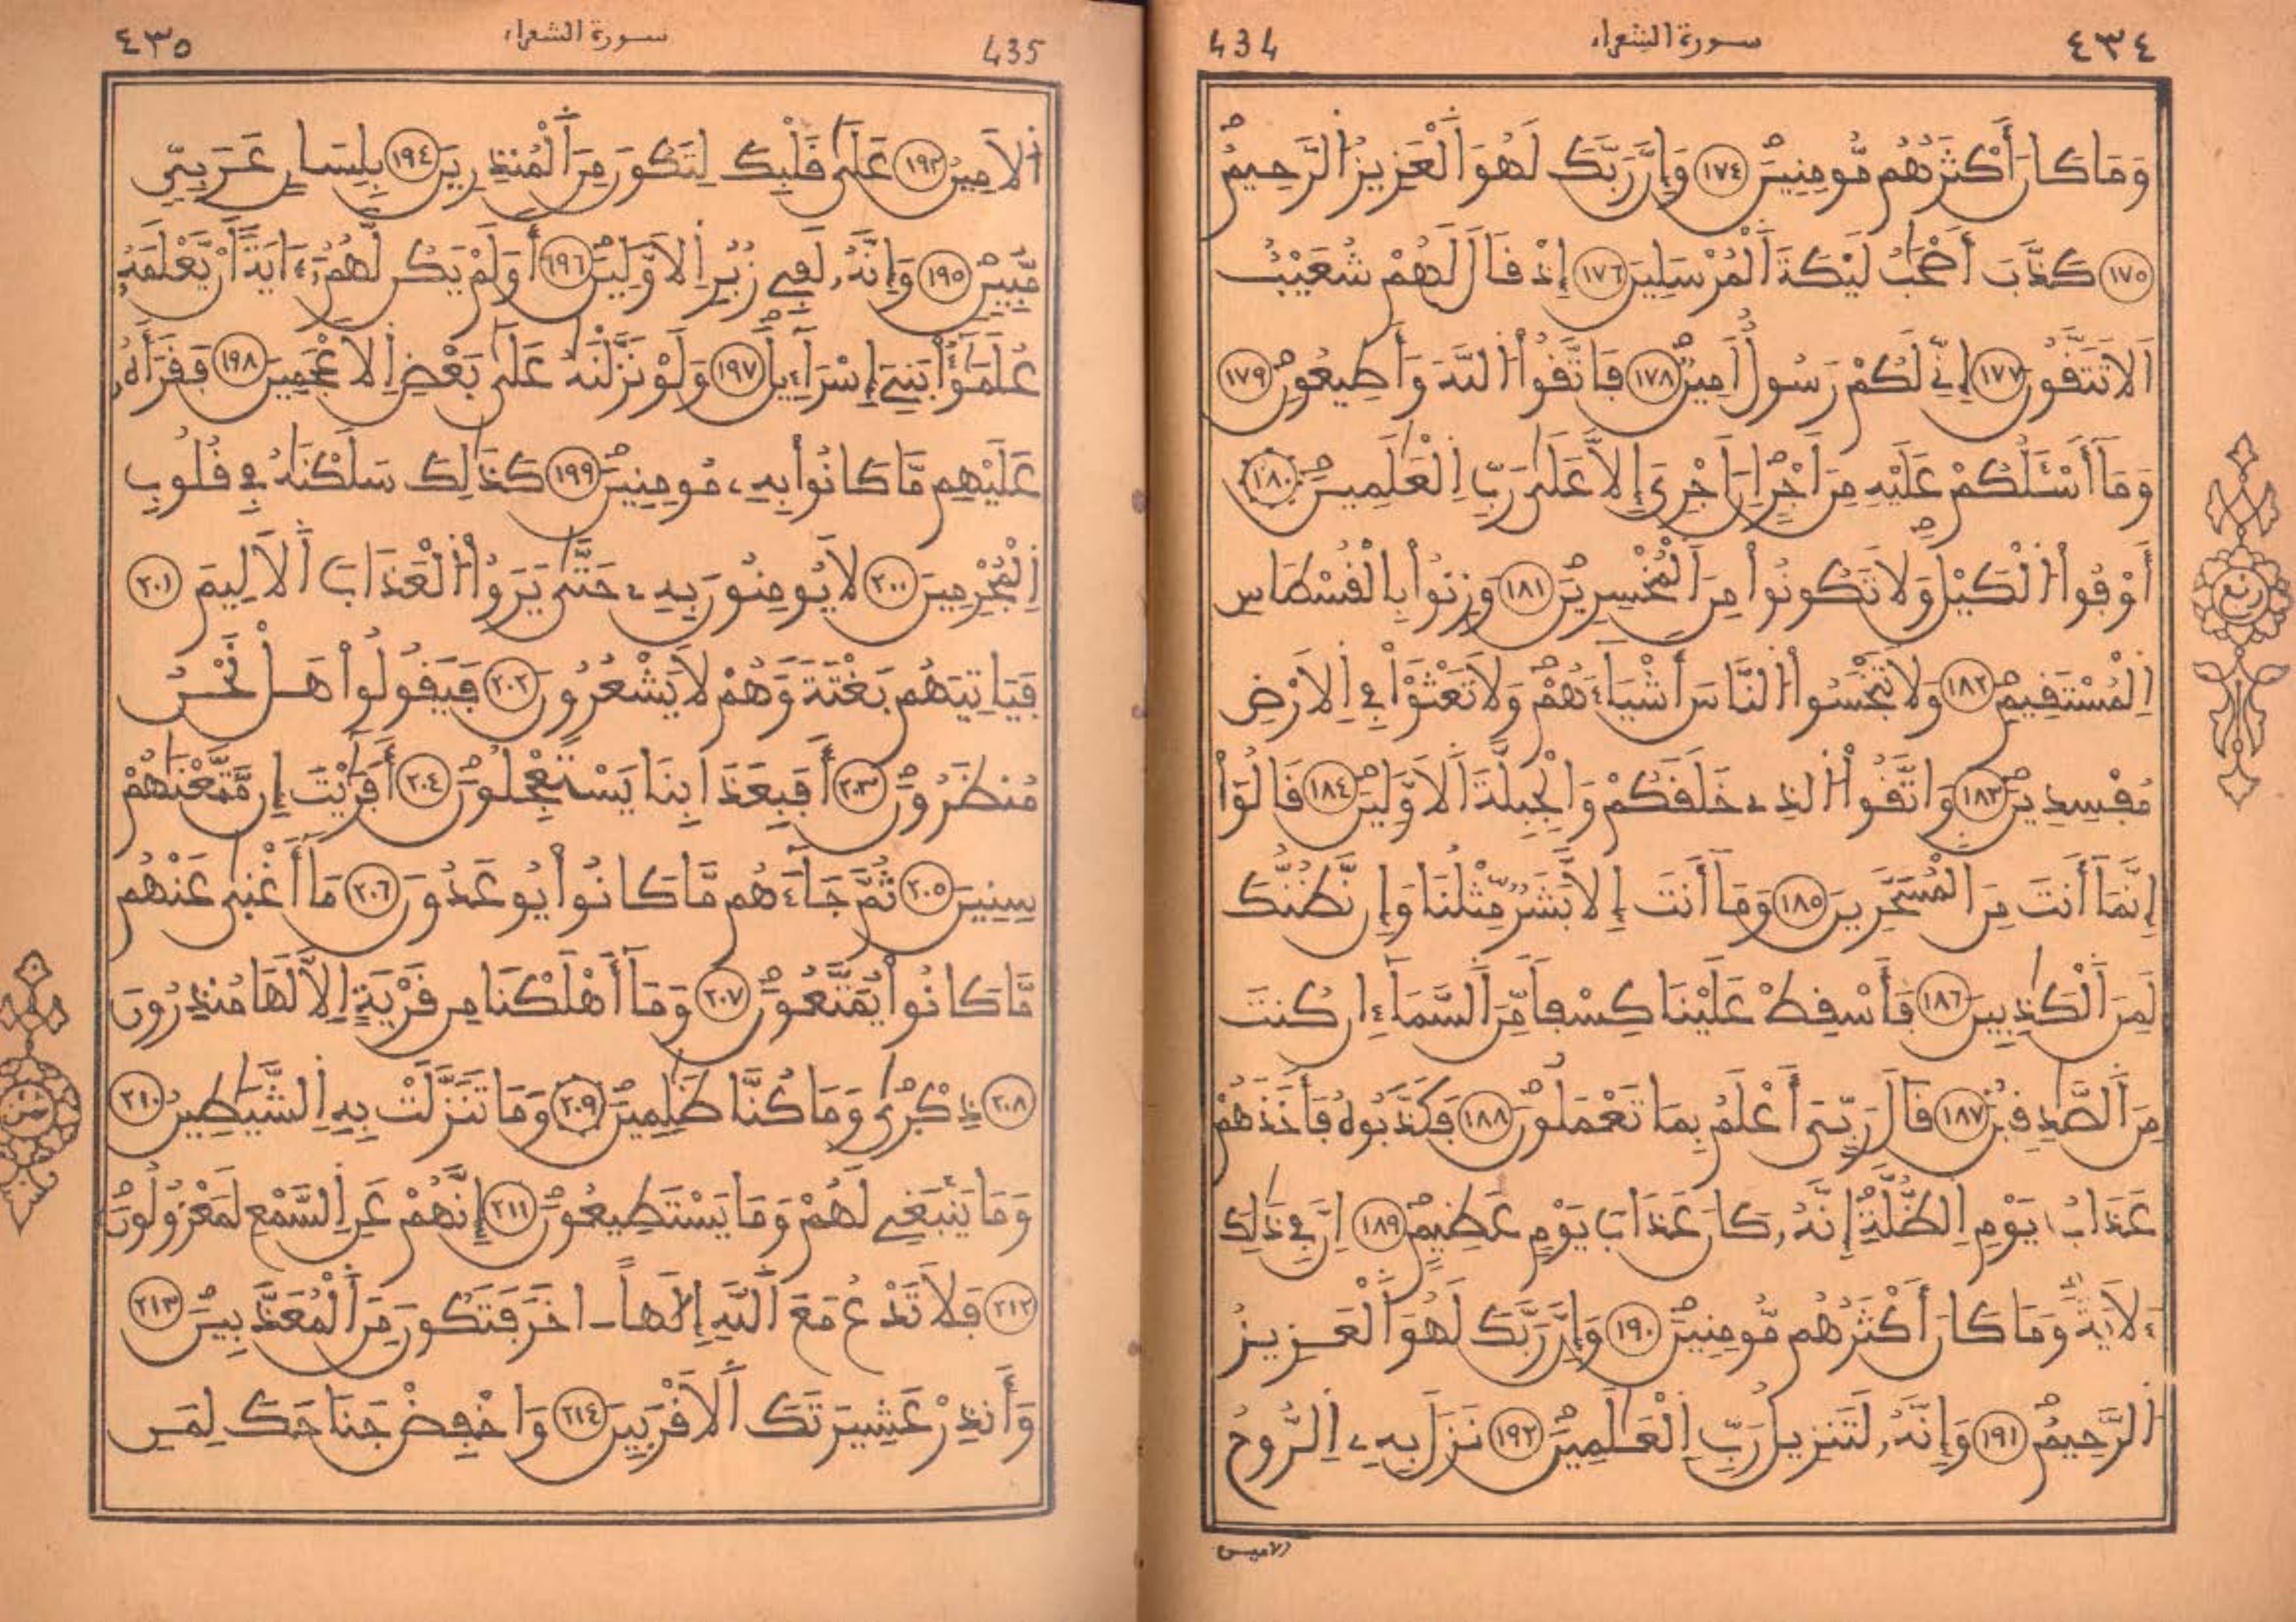 434 سورة الشعراء ٤٣٤
وَمَا كَانَ أَكْثَرُهُم مُّومِنِينَ ١٧٤ وَإِنَّ رَبَّكَ لَهُوَ اَلْعَزِيزُ اُلرَّحِيمُ
١٧٥ كَذَّبَ أَصْحَٰبُ لَيْكَةَ اَلْمُرْسَلِينَ ١٧٦ إِذْ قَالَ لَهُمْ شُعَيْبٌ
اَلَا تَتَّقُونَ ١٧٧ إِنِّے لَكُمْ رَسُولٌ اَمِينٌ ١٧٨ فَاتَّقُواْ اُللَّهَ وَأَطِيعُونِ ١٧٩
وَمَآ أَسْـَٔلُكُمْ عَلَيْهِ مِنَ اَجْرٍ اِنَ اَجْرِيَ إِلَّا عَلَىٰ رَبِّ اِلْعَٰلَمِينَ ١٨٠
أَوْفُواْ اُلْكَيْلَ وَلَا تَكُونُواْ مِنَ اَلْمُخْسِرِينَ ١٨١ وَزِنُواْ بِالْقُسْطَاسِ
اِلْمُسْتَقِيمِ ١٨٢ وَلَا تَبْخَسُواْ اُلنَّاسَ أَشْيَآءَهُمْ وَلَا تَعْثَوْاْ فِے اِلَارْضِ
مُفْسِدِينَ ١٨٣ وَاتَّقُواْ اُلذِے خَلَقَكُمْ وَالْجِبِلَّةَ اَلَاوَّلِينَ ١٨٤ قَالُوٓاْ
إِنَّمَآ أَنتَ مِنَ اَلْمُسَحَّرِينَ ١٨٥ وَمَآ أَنتَ إِلَّا بَشَرٌ مِّثْلُنَا وَإِن نَّظُنُّكَ
لَمِنَ اَلْكَٰذِبِينَ ١٨٦ فَأَسْقِطْ عَلَيْنَا كِسْفاً مِّنَ اَلسَّمَآءِ ان كُنتَ
مِنَ اَلصَّٰدِقِينَ ١٨٧ قَالَ رَبِّيَ أَعْلَمُ بِمَا تَعْمَلُونَ ١٨٨ فَكَذَّبُوهُ فَأَخَذَهُمْ
عَذَابُ يَوْمِ اِلظُّلَّةِ إِنَّهُۥ كَانَ عَذَابَ يَوْمٍ عَظِيمٍ ١٨٩ اِنَّ فِے ذَٰلِكَ
ءَلَايَةً وَمَا كَانَ أَكْثَرُهُم مُّومِنِينَ ١٩٠ وَإِنَّ رَبَّكَ لَهُوَ اَلْعَزِيزُ
اُلرَّحِيمُ ١٩١ وَإِنَّهُۥ لَتَنزِيلُ رَبِّ اِلْعَٰلَمِينَ ١٩٢ نَزَلَ بِهِۦ اِلرُّوحُ
الامين
ربع
435 سورة الشعراء ٤٣٥
اُلَامِينُ ١٩٣ عَلَىٰ قَلْبِكَ لِتَكُونَ مِنَ اَلْمُنذِرِينَ ١٩٤ بِلِسَانٍ عَرَبِيّٖ
مُّبِينٍ ١٩٥ وَإِنَّهُۥ لَفِے زُبُرِ اِلَاوَّلِينَ ١٩٦ أَوَلَمْ يَكُن لَّهُمُۥٓ ءَايَةً اَنْ يَّعْلَمَهُۥ
عُلَمَٰٓؤُاْ بَنِےٓ إِسْرَآءِيلَ ١٩٧ وَلَوْ نَزَّلْنَٰهُ عَلَىٰ بَعْضِ اِلَاعْجَمِينَ ١٩٨ فَقَرَأَهُۥ
عَلَيْهِم مَّا كَانُواْ بِهِۦ مُومِنِينَ ١٩٩ كَذَٰلِكَ سَلَكْنَٰهُ فِے قُلُوبِ
اِلْمُجْرِمِينَ ٢٠٠ لَا يُومِنُونَ بِهِۦ حَتَّىٰ يَرَوُاْ اُلْعَذَابَ اَلَالِيمَ ٢٠١
فَيَاتِيَهُم بَغْتَةً وَهُمْ لَا يَشْعُرُونَ ٢٠٢ فَيَقُولُواْ هَلْ نَحْنُ
مُنظَرُونَ ٢٠٣ أَفَبِعَذَابِنَا يَسْتَعْجِلُونَ ٢٠٤ أَفَرَٰيْتَ إِن مَّتَّعْنَٰهُمْ
سِنِينَ ٢٠٥ ثُمَّ جَآءَهُم مَّا كَانُواْ يُوعَدُونَ ٢٠٦ مَآ أَغْنَىٰ عَنْهُم
مَّا كَانُواْ يُمَتَّعُونَ ٢٠٧ وَمَآ أَهْلَكْنَا مِن قَرْيَةٍ اِلَّا لَهَا مُنذِرُونَ
٢٠٨ ذِكْرَىٰ وَمَا كُنَّا ظَٰلِمِينَ ٢٠٩ وَمَا تَنَزَّلَتْ بِهِ اِلشَّيَٰطِينُ ٢١٠
وَمَا يَنۢبَغِے لَهُمْ وَمَا يَسْتَطِيعُونَ ٢١١ إِنَّهُمْ عَنِ اِلسَّمْعِ لَمَعْزُولُونَ
٢١٢ فَلَا تَدْعُ مَعَ اَللَّهِ إِلَٰهاً ـ اخَرَ فَتَكُونَ مِنَ اَلْمُعَذَّبِينَ ٢١٣
وَأَنذِرْ عَشِيرَتَكَ اَلَاقْرَبِينَ ٢١٤ وَاخْفِضْ جَنَاحَكَ لِمَنِ
ثمن